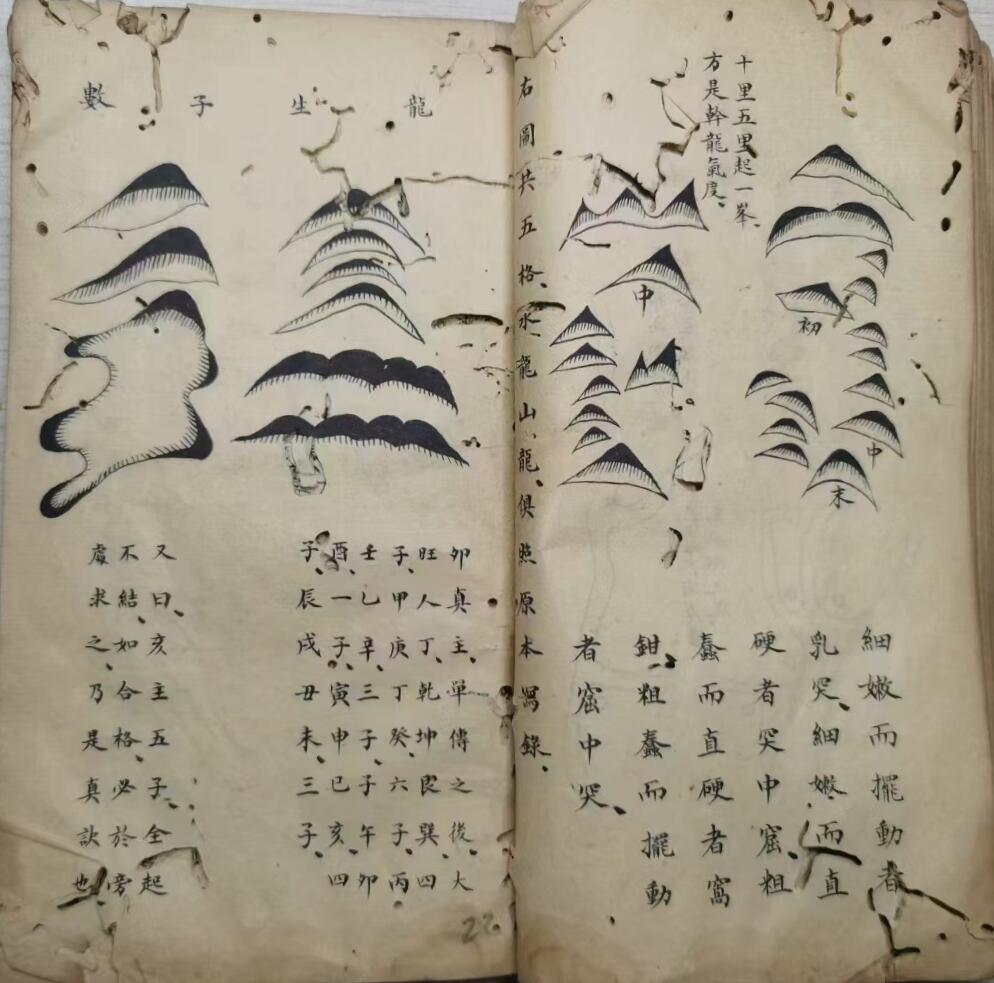 十里五里起一峯、
方是幹龍氣度、
初
中
末
中
細嫩而擺動者
乳突、細嫩而直
硬者突中窟、粗
蠢而直硬者窩
鉗粗蠢而擺動
者窟中突、
右圖共五格、水龍山龍、俱照原本寫錄、
龍生子數
卯真主、單傳之後、大
旺人丁、乾坤艮巽、四
子、甲庚丁癸、六子、丙
壬乙辛、三子、子午卯
酉、一子、寅申巳亥、四
子、辰戌丑未、三子、
又曰、亥主五子、全起
不結、如合格、必於旁
處求之、乃是真訣也
22